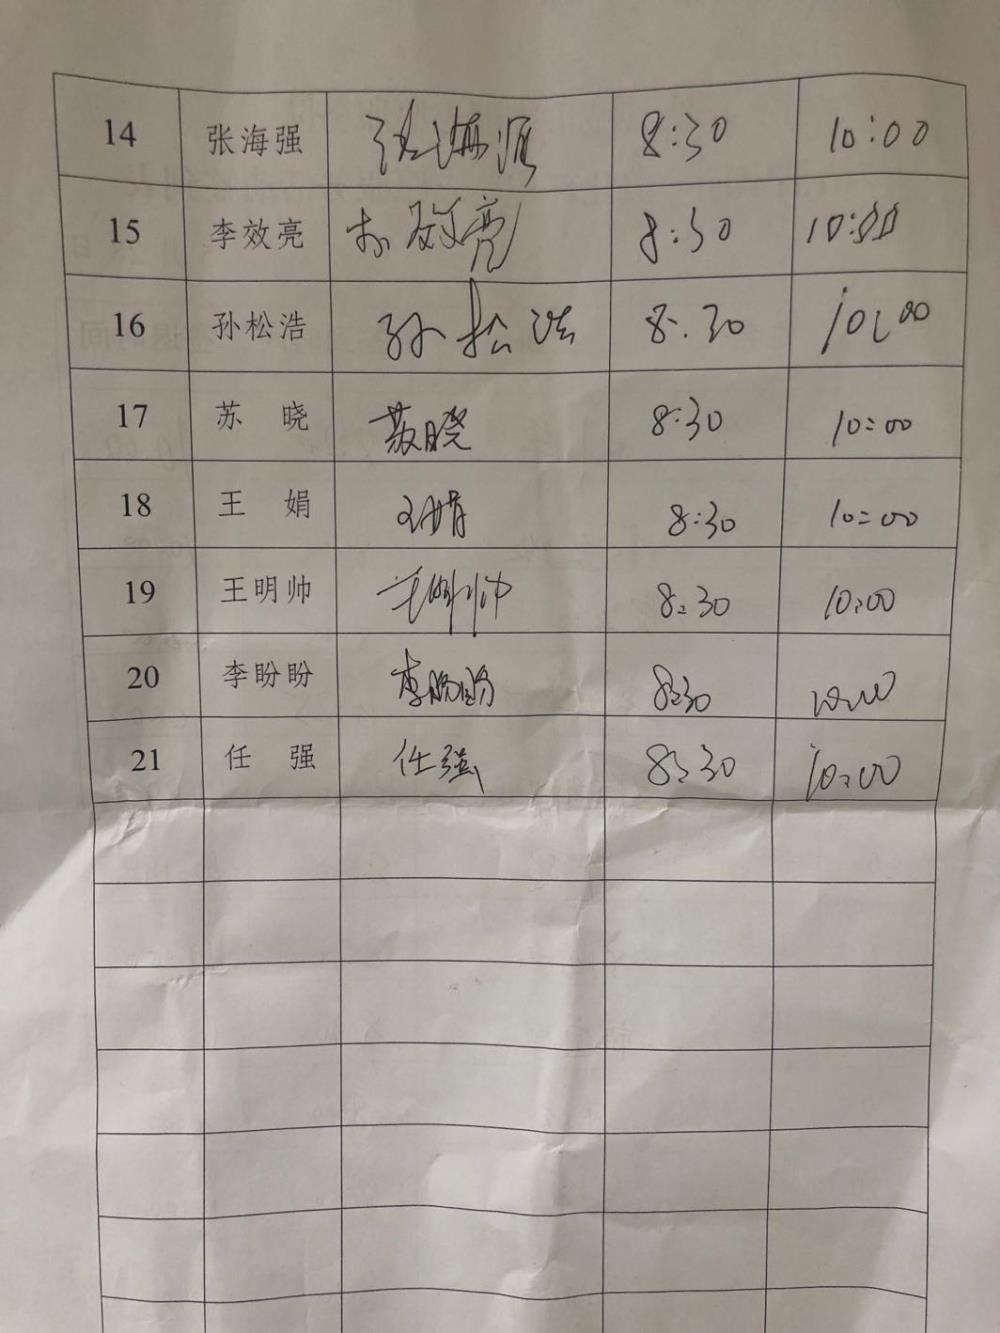 14 张海强 张海强 8:30 10:00
15 李效亮 李效亮 8:30 10:00
16 孙松浩 孙松浩 8:30 10:00
17 苏晓 苏晓 8:30 10:00
18 王娟 王娟 8:30 10:00
19 王明帅 王明帅 8:30 10:00
20 李盼盼 李盼盼 8:30 10:00
21 任强 任强 8:30 10:00